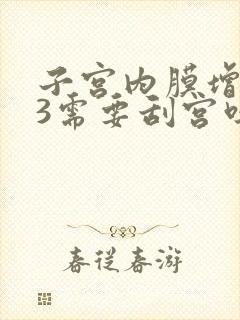 子宫内膜增
3需要刮宫吗
春從春游